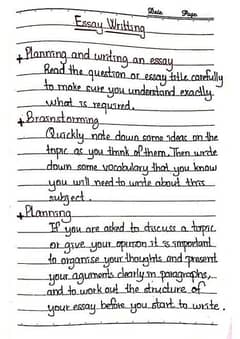 Date Page
Essay Writting
+ Planning and writing an essay
Read the question or essay title carefully
to make sure you understand exactly
what is required.
+ Brasnstorming
Quickly note down some ideas on the
topic as you think of them. Then write
down some vocabulary that you know
you will need to write about this
subject.
+ Planning
If you are asked to discuss a topic
or give your opinion it is important
to organise your thoughts and present
your aguments clearly in paragraphs,
and to work out the structure of
your essay before you start to write.